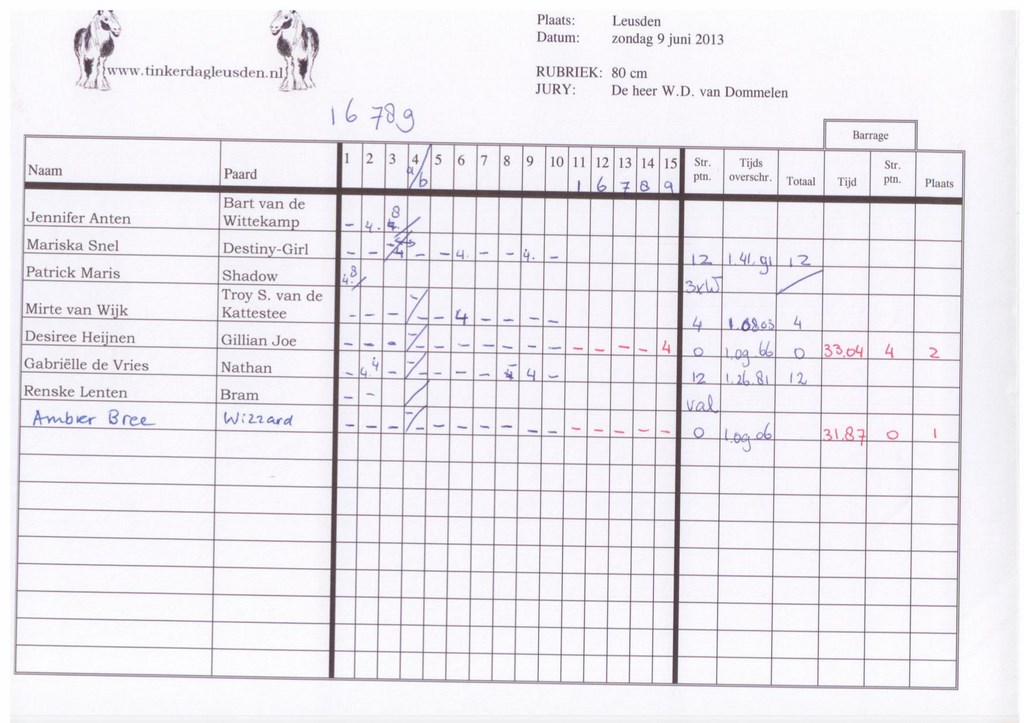 Plaats: Leusden
Datum: zondag 9 juni 2013
www.tinkerdagleusden.nl
RUBRIEK: 80 cm
JURY: De heer W.D. van Dommelen
1 6 7 8 9
Barrage
Naam Paard 1 2 3 4 a/b 5 6 7 8 9 10 11 12 13 14 15 Str. ptn. Tijds overschr. Totaal Tijd Str. ptn. Plaats
1 6 7 8 9
Jennifer Anten Bart van de Wittekamp - 4. 8
Mariska Snel Destiny-Girl - - 4 - - 4. - - 4. - 12 1.41.91 12
Patrick Maris Shadow 4. 8 3xW
Mirte van Wijk Troy S. van de Kattestee - - - - - - 4 - - - - 4 1.08.03 4
Desiree Heijnen Gillian Joe - - - - - - - - - - - - - - - 4 0 1.09.66 0 33.04 4 2
Gabriëlle de Vries Nathan - 4. 4 - - - - - - 4 - 12 1.26.81 12
Renske Lenten Bram - - val
Amber Bree Wizzard - - - - - - - - - - - - - - - - 0 1.09.06 31.87 0 1